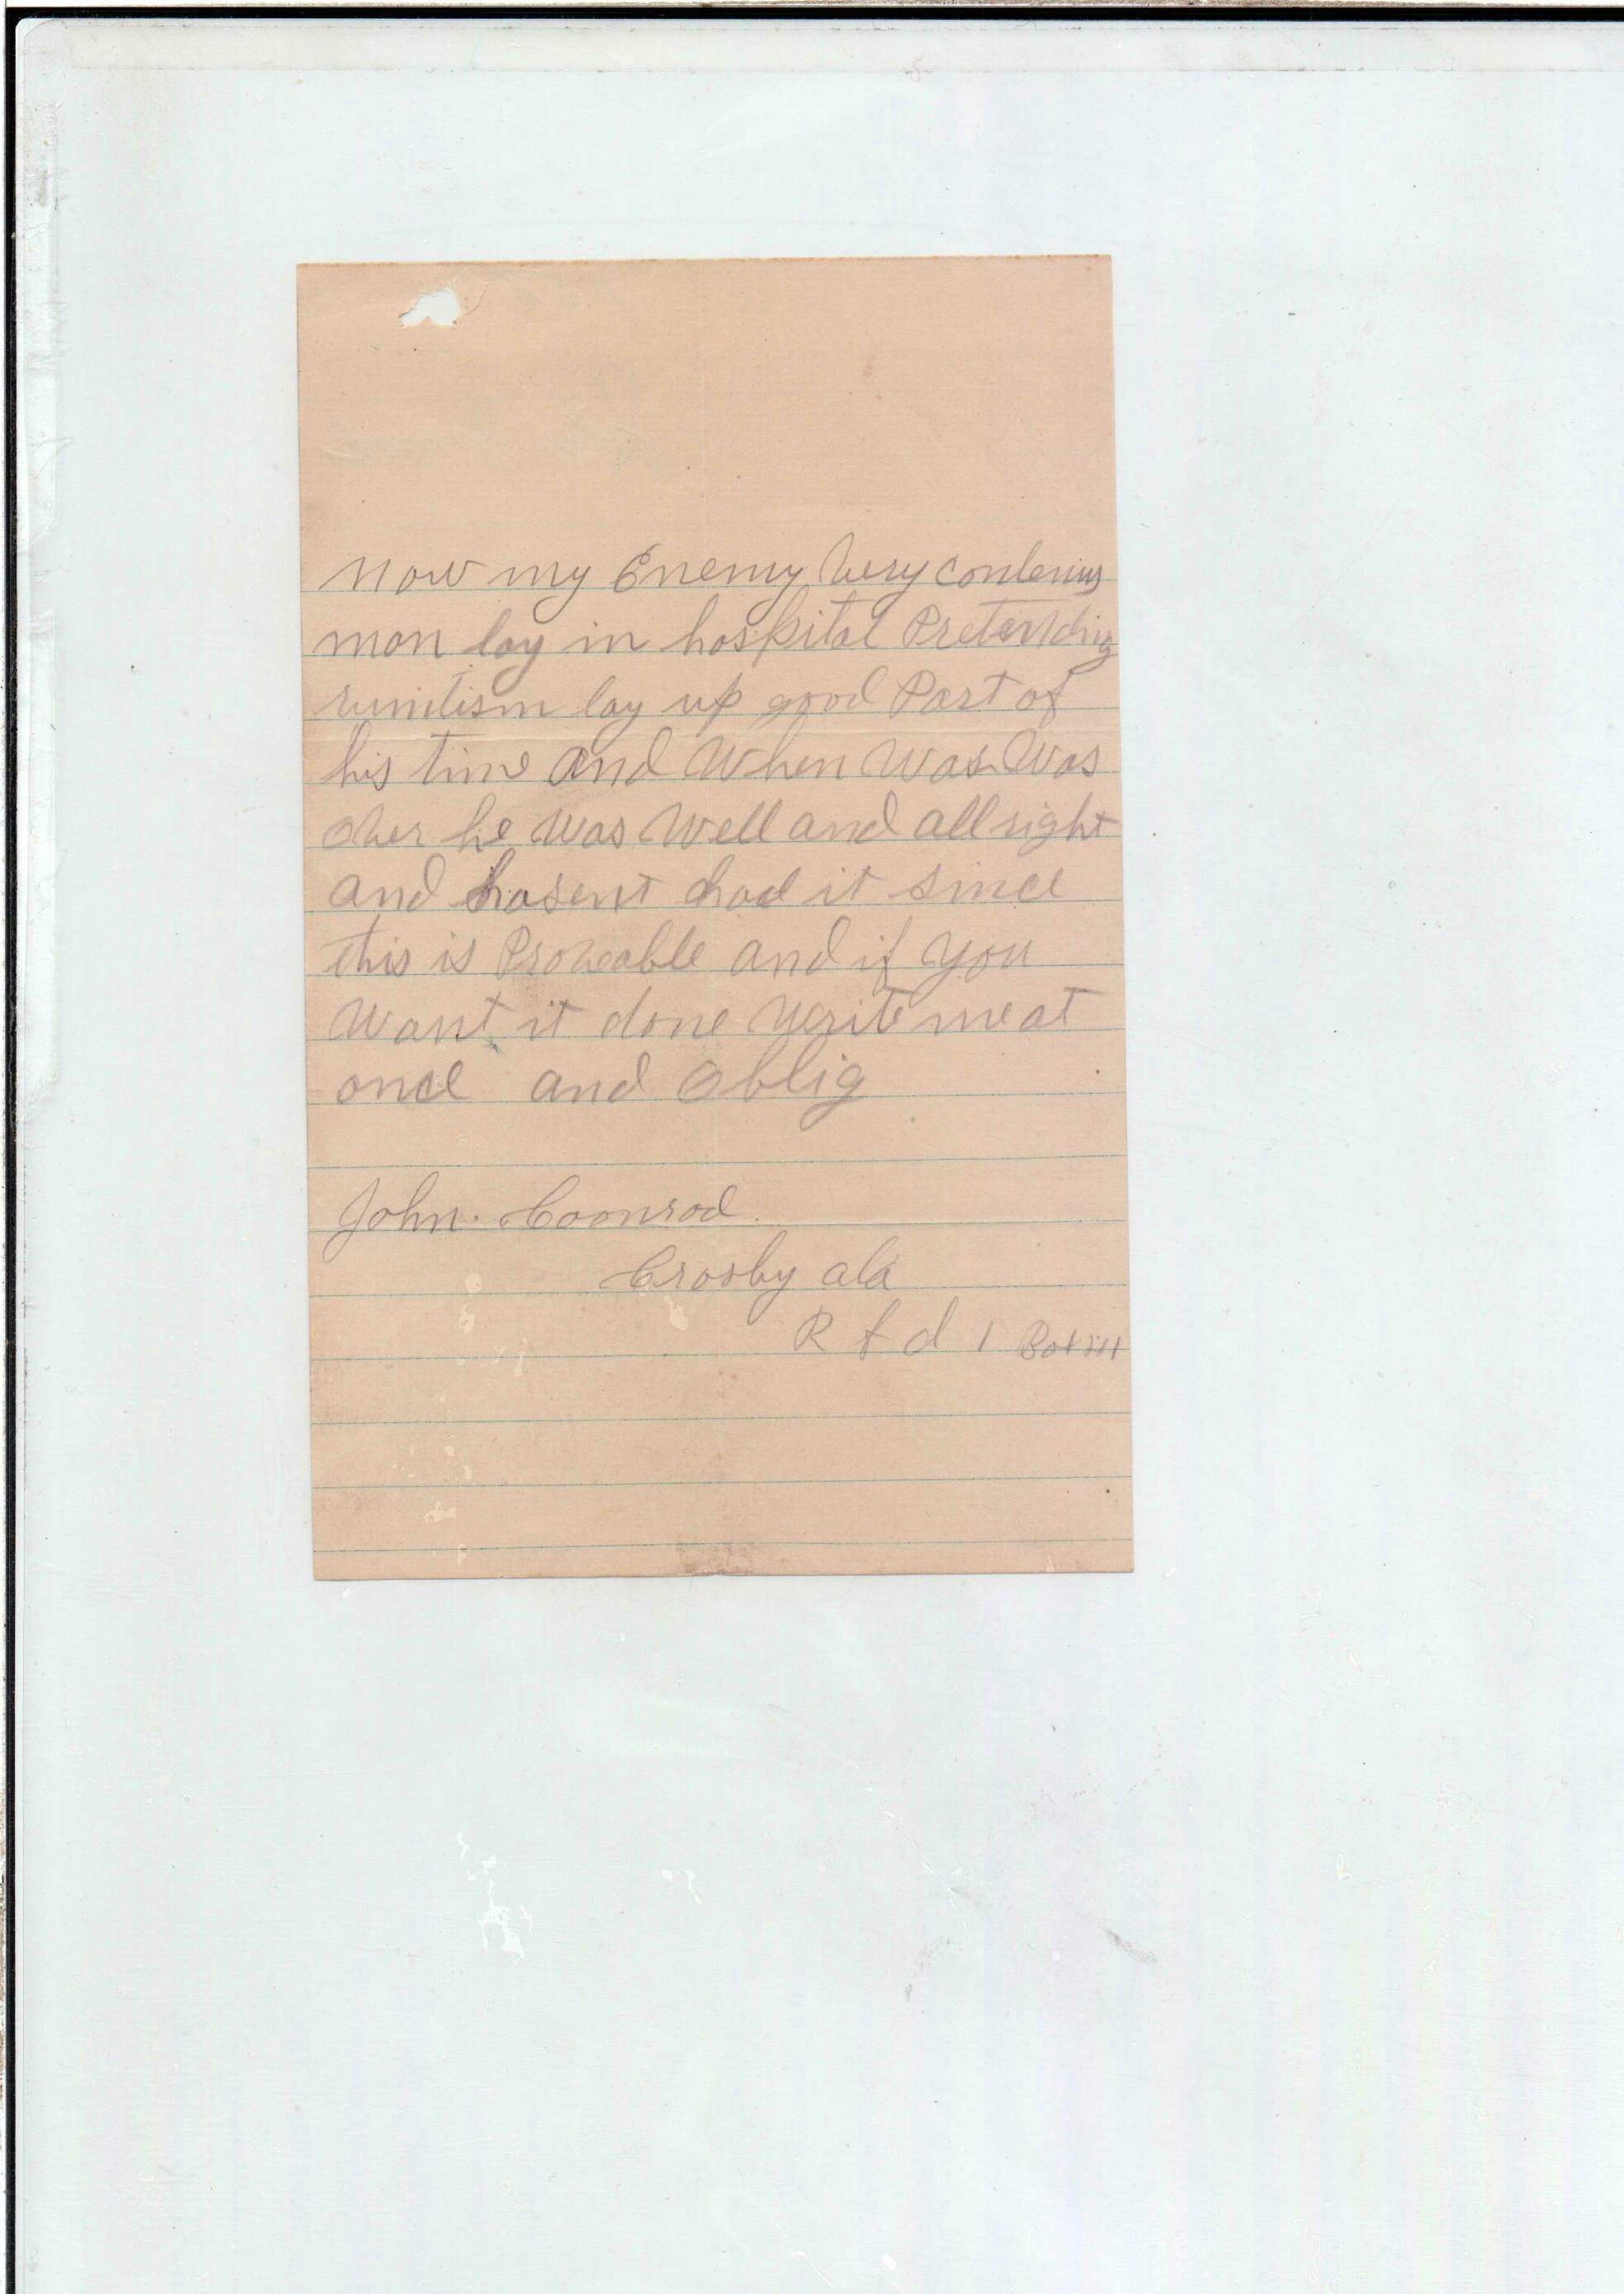 now my Enemy Very
mon lay in hospital Pretending
rumitism lay up good Part of
his time and When Was Was
Over he Was Well and all right
and hasent had it since
this is Proveable and if you
Want it done Write me at
once and Oblig
John. Coonrod.
Crosby ala
R f d 1 Box